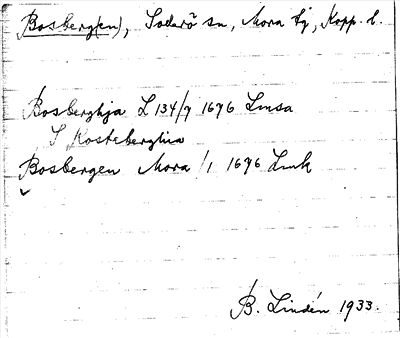 Bosberg(en), Sollerö sn, Mora tg, Kopp. l.
Bosberghja L 134/7 1676 Lmsa
S Kosteberghia
Bosbergen Mora /1 1696 Lmk
B. Lindén 1933.